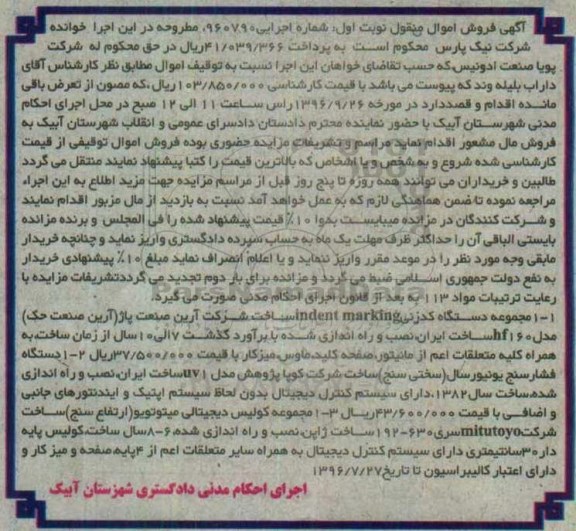 آگهی فروش اموال منقول نوبت اول: شماره اجرایی ۹۶۰۷۹۰، مطروحه در این اجرا خوانده
شرکت نیک پارس محکوم است به پرداخت ۴۱/۰۳۹/۳۶۶ریال در حق محکوم له شرکت
پویا صنعت ادونیس،که حسب تقاضای خواهان این اجرا نسبت به توقیف اموال مطابق نظر کارشناس آقای
داراب بلیله وند که پیوست می باشد با قیمت کارشناسی ۱۰۳/۸۵۰/۰۰۰ریال ،که مصون از تعرض باقی
مانده اقدام و قصددارد در مورخه ۱۳۹۶/۹/۲۶راس ساعت ۱۱ الی ۱۲ صبح در محل اجرای احکام
مدنی شهرستان آبیک با حضور نماینده محترم دادستان دادسرای عمومی و انقلاب شهرستان آبیک به
فروش مال مشعور اقدام نماید مراسم و تشریفات مزایده حضوری بوده فروش اموال توقیفی از قیمت
کارشناسی شده شروع و به شخص و یا اشخاص که بالاترین قیمت را کتبا پیشنهاد نمایند منتقل می گردد
طالبین و خریداران می توانند همه روزه تا پنج روز قبل از مراسم مزایده جهت مزید اطلاع به این اجراء
مراجعه نموده تا ضمن هماهنگی لازم که به عمل خواهد آمد نسبت به بازدید از مال مزبور اقدام نمایند
و شرکت کنندگان در مزانده میبایست بدوا ۱۰٪ قیمت پیشنهاد شده را فی المجلس و برنده مزانده
بایستی الباقی آن را حداکثر ظرف مهلت یک ماه به حساب سپرده دادگستری واریز نماید و چنانچه خریدار
مابقی وجه مورد نظر را در موعد مقرر واریز ننماید و یا اعلام انصراف نماید مبلغ ۱۰٪ پیشنهادی خریدار
به نفع دولت جمهوری اسلامی ضبط می گردد و مزانده برای بار دوم تجدید می گرددتشریفات مزایده با
رعایت ترتیبات مواد ۱۱۳ به بعد از قانون اجرای احکام مدنی صورت می گیرد
۱-۱مجموعه دستگاه کدزنیindent markingساخت شرکت آرین صنعت پاژ(آرین صنعت حک)
مدلhf۱۶۰ساخت ایران،نصب و راه اندازی شده با برآورد گذشت ۷الی۱۰سال از زمان ساخت،به
همراه کلیه متعلقات اعم از مانیتور،صفحه کلید،ماوس،میزکار با قیمت ۳۷/۵۰۰/۰۰۰ریال ۲-۱دستگاه
فشارسنج یونیورسال(سختی سنج)ساخت شرکت کوپا پژوهش مدل uv۱ساخت ایران،نصب و راه اندازی
شده،ساخت سال۱۳۸۲،دارای سیستم کنترل دیجیتال بدون لحاظ سیستم اپتیک و ایندنتورهای جانبی
و اضافی با قیمت ۴۳/۶۰۰/۰۰۰ریال ۳-۱مجموعه کولیس دیجیتالی میتوتویو(ارتفاع سنج)ساخت
شرکتmitutoyoسری۶۳۰-۱۹۲ساخت ژاپن،نصب و راه اندازی شده،۶-۸سال ساخت،کولیس پایه
دار۳۰سانتیمتری دارای سیستم کنترل دیجیتال به همراه سایر متعلقات اعم از ۴پایه،صفحه و میز کار و
دارای اعتبار کالیبراسیون تا تاریخ۱۳۹۶/۷/۲۷
اجرای احکام مدنی دادگستری شهرستان آبیک